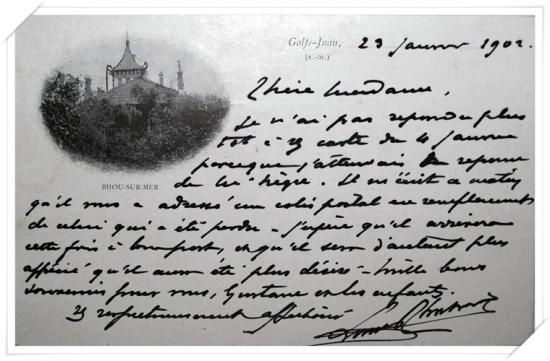 Golfe-Juan, 23 Janvier 1902.
(A.-M.)
Chère Madame,
Je n'ai pas répondu plus
tôt à carte du 4 Janvier
parceque j'attendais la réponse
de Il m'écrit ce matin
qu'il vous a adressé un colis postal en remplacement
BIJOU-SUR-MER
de celui qui a été perdu. J'espère qu'il arrivera
cette fois à bon port, et qu'il sera d'autant plus
apprécié qu'il aura été plus désiré - Mille bons
souvenirs pour vous, Gustave et les enfants.
respectueusement affectionné